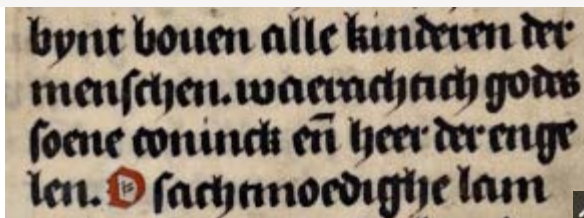 bynt bouen alle kinderen der
menschen. waerachtich godes
soene coninck en̄ heer der enge
len. O sachtmoedighe lam